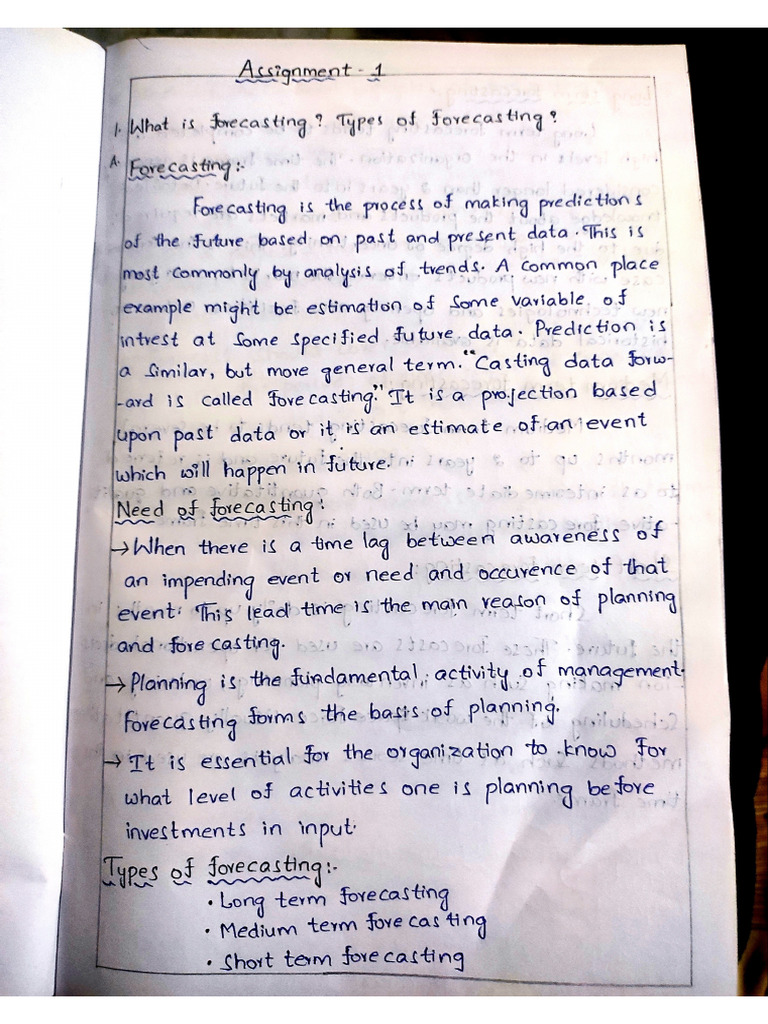 Assignment - 1
1. What is forecasting? Types of forecasting?
A. Forecasting:-
Forecasting is the process of making predictions
of the future based on past and present data. This is
most commonly by analysis of trends. A common place
example might be estimation of some variable of
intrest at some specified future data. Prediction is
a similar, but more general term. "Casting data forw-
-ard is called forecasting." It is a projection based
upon past data or it is an estimate of an event
which will happen in future.
Need of forecasting:
→ When there is a time lag between awareness of
an impending event or need and occurence of that
event. This lead time is the main reason of planning
and fore casting.
→ Planning is the fundamental activity of management.
forecasting forms the basis of planning.
→ It is essential for the organization to know for
what level of activities one is planning before
investments in input.
Types of forecasting:-
• Long term forecasting
• Medium term forecasting
• Short term forecasting